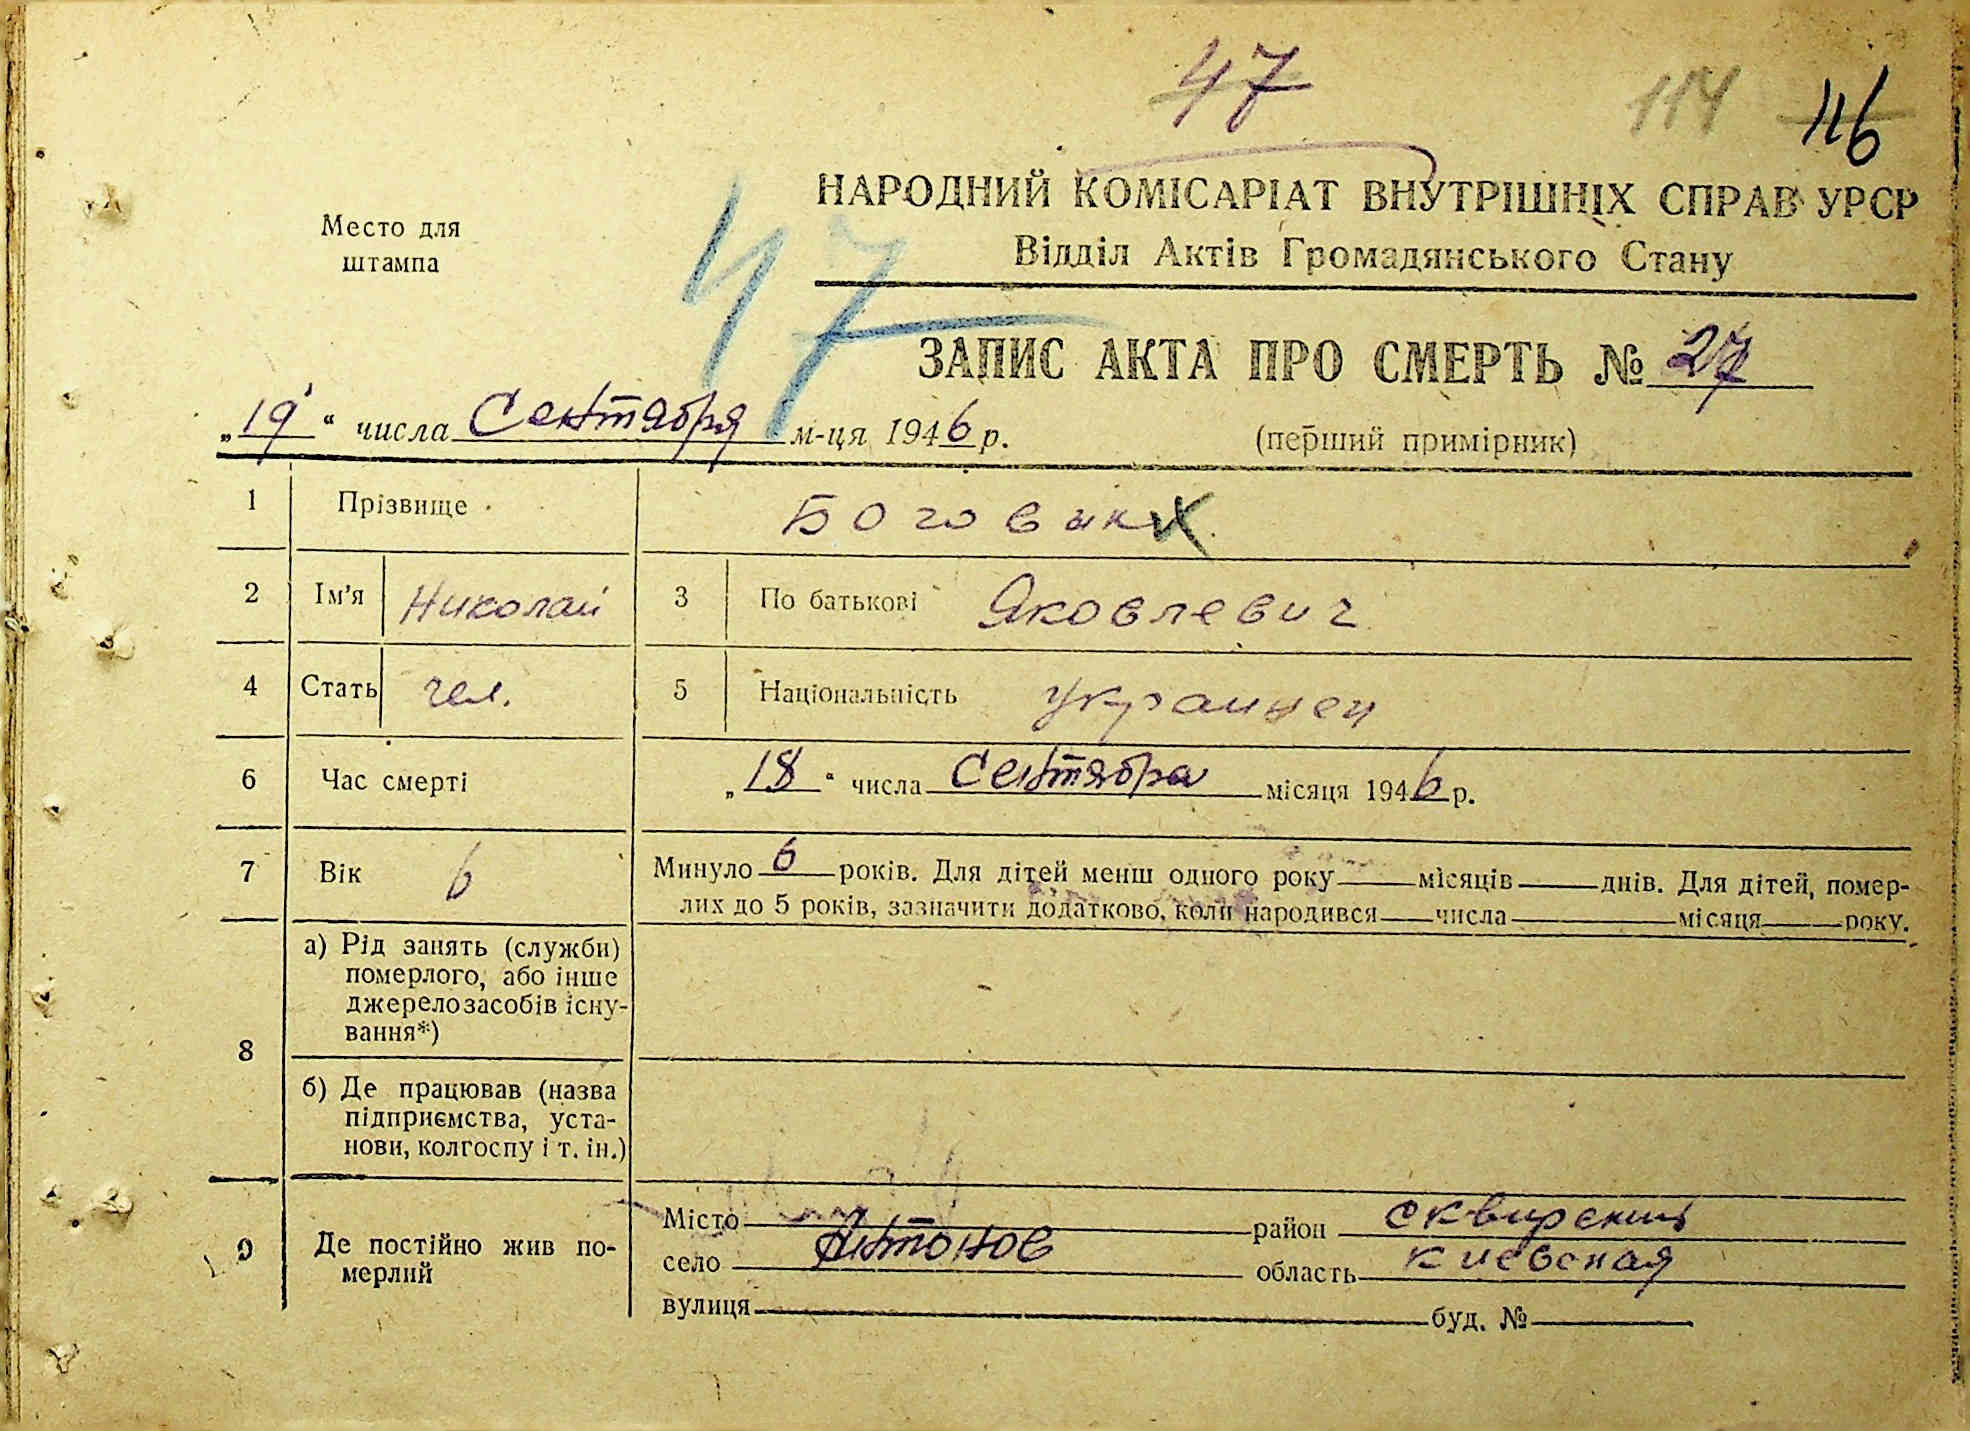 47
114 116
Место для
штампа
НАРОДНИЙ КОМІСАРІАТ ВНУТРІШНІХ СПРАВ УРСР
Відділ Актів Громадянського Стану
47
ЗАПИС АКТА ПРО СМЕРТЬ № 27
„19“ числа Сентября м-ця 1946 р.
(перший примірник)
1 Прізвище
2 Ім’я Николай 3 По батькові Яковлевич
4 Стать чел. 5 Національність украинец
6 Час смерті „18“ числа Сентября місяця 1946 р.
7 Вік 6 Минуло 6 років. Для дітей менш одного року місяців днів. Для дітей, помер-
лих до 5 років, зазначити додатково, коли народився числа місяця року.
8 а) Рід занять (служби)
померлого, або інше
джерело засобів існу-
вання*)
б) Де працював (назва
підприємства, уста-
нови, колгоспу і т. ін.)
9 Де постійно жив по-
мерлий
Місто район сквирский
село Антонов область киевская
вулиця буд. №